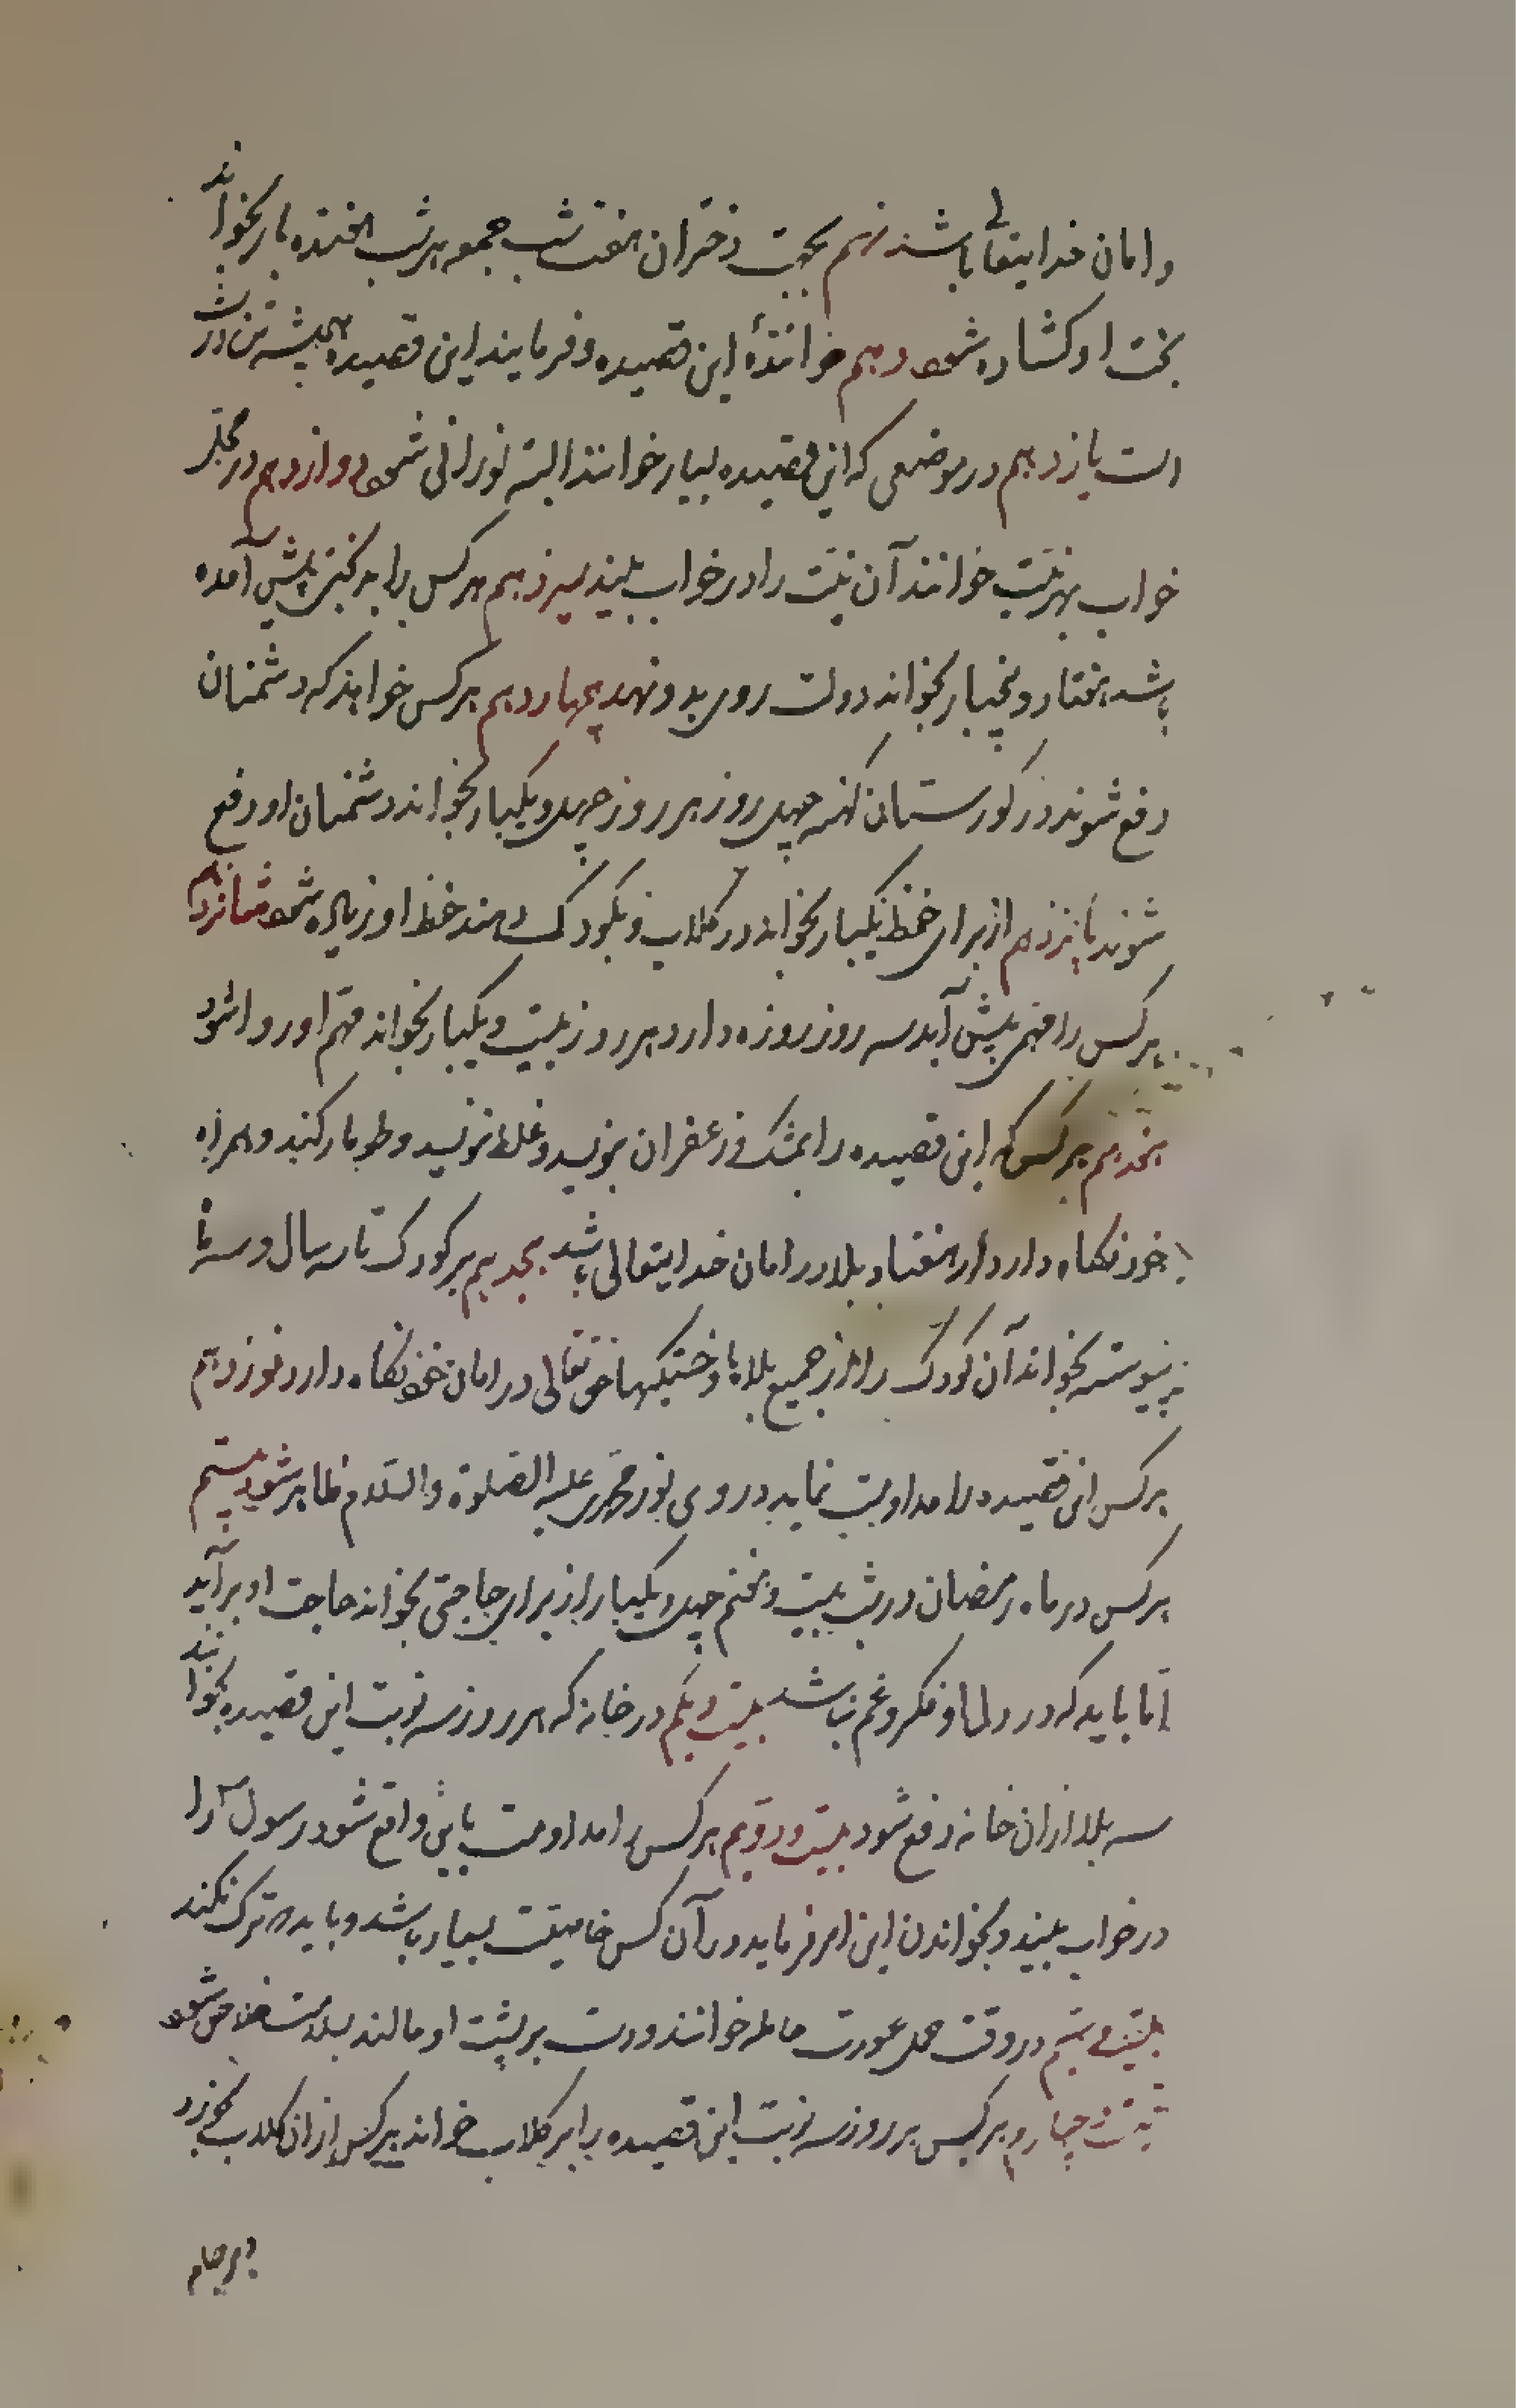 و امان خدایتعالی باشد نهم بجهت دختران هفت شب جمعه هر شب هفده بار بخواند
بخت او کشاده شود دهم خوانندهٔ این قصیده و فرمایند این قصیده همیشه تن درست
است یازدهم در موضعی که این قصیده بسیار خوانند البته نورانی شود دوازدهم در محل
خواب بهر نیت خوانند آن نیت را در خواب بیند سیزدهم هر کس را بد کیش پیش آمده
باشد هفتاد و پنجبار بخواند دولت روی بدو نهد چهاردهم هر کس خواهد که دشمنان
دفع شوند در کورستان کهنه چهل روز هر روز چهل و یکبار بخواند دشمنان او دفع
شوند پانزدهم از برای حفظ یکبار بخواند در کلاب و بکودک دهند حفظ او زیاده شود شانزدهم
هر کس را مهمی پیش آید سه روز روزه دارد هر روز بیست و یکبار بخواند مهم او روا شود
هفدهم هر کس که این قصیده را بمشک و زعفران بنویسد و غلط ننویسد و طومار کند و همراه
خود نکاه دارد از هفتاد بلا در امان خدایتعالی باشد هجدهم بر کودک تا سه سال و سه ماه
پیوسته بخواند آن کودک را از جمیع بلاها و خستیکیها حق تعالی در امان خود نکاه دارد نوزدهم
هر کس این قصیده را مداومت نماید در وی نور محمدی علیه الصلوة والسلام ظاهر شود بیستم
هر کس در ماه رمضان در شب بیست و پنجم چهل و یکبار از برای حاجتی بخواند حاجت او برآید
اما باید که در دلها و فکر و غم نباشد بیست و یکم در خانه که هر روز سه نوبت این قصیده بخوانند
سه بلا از ان خانه دفع شود بیست و دویم هر کس را مداومت باین واقع شود رسول را
در خواب بیند و بخواندن این امر فرماید در آن کس خاصیت بسیار باشد و باید که ترک نکند
بیست و سیم در وقت حمل عورت حامله خوانند و دست بر پشت او مالند بسلامت خلاص شود
بیست و چهارم هر کس هر روز سه نوبت این قصیده را بر کلاب خواند هر کس از ان کلاب بخورد